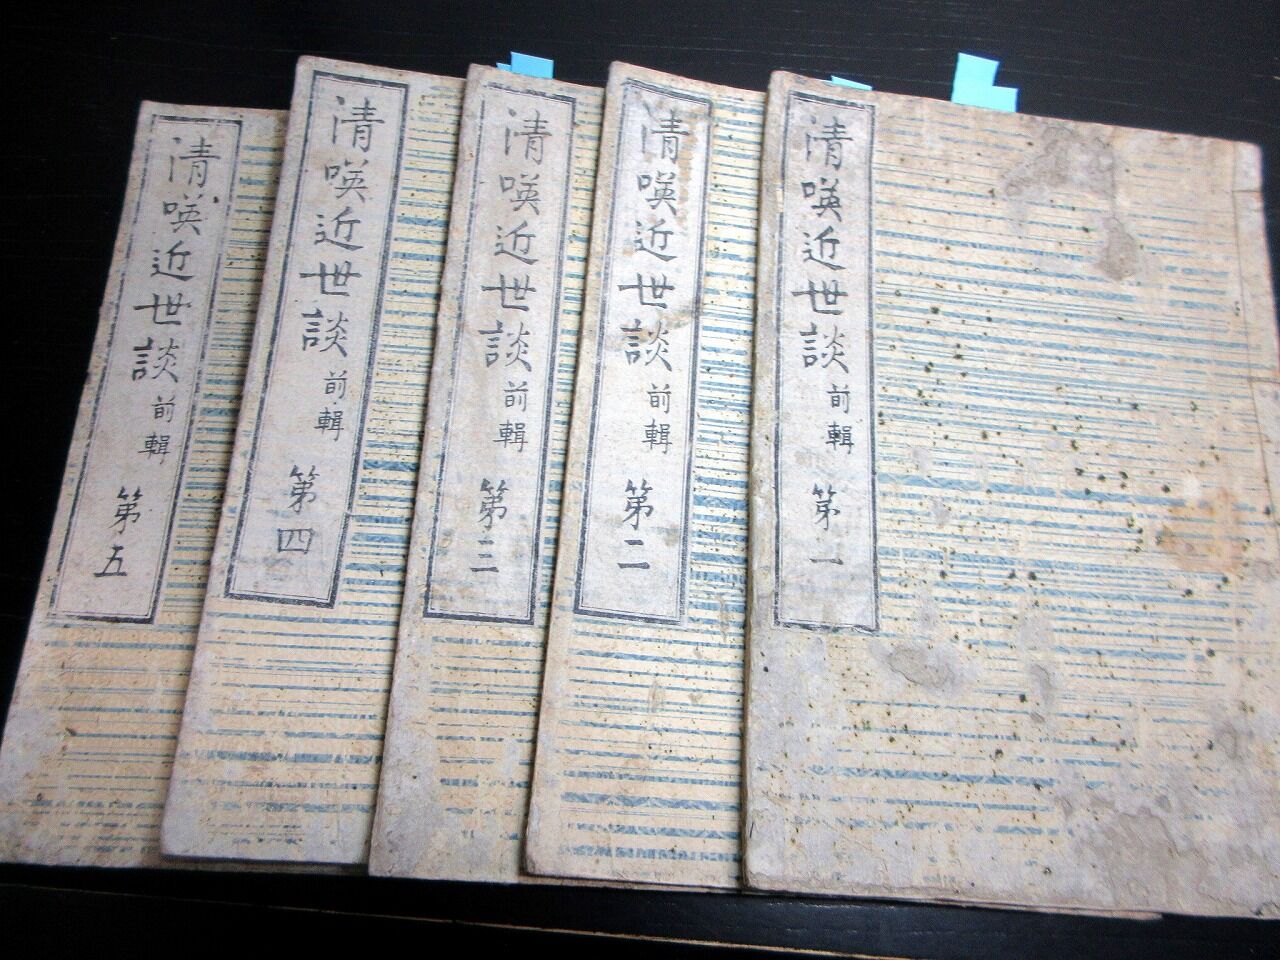 清嘆近世談 前輯 第一
清嘆近世談 前輯 第二
清嘆近世談 前輯 第三
清嘆近世談 前輯 第四
清嘆近世談 前輯 第五